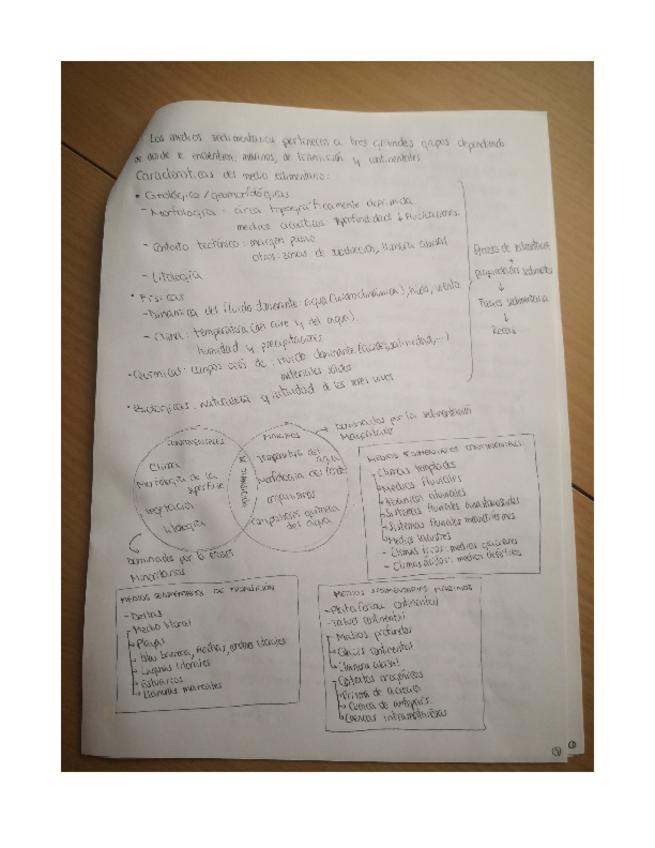 Los medios sedimentarios pertenecen a tres grandes grupos dependiendo
de donde se encuentren: marinos, de transición y continentales
Características del medio sedimentario:
• Geológicas / geomorfológicas
- Morfología: área topográficamente deprimida
medios acuáticos: ↑profundidad ↓fluctuaciones
- Contexto tectónico: margen pasivo
otros: zonas de subducción, llanura abisal
- Litología
• Físicas
- Dinámica del fluido dominante: agua (hidrodinámica), hielo, viento
- Clima: temperatura (del aire y del agua)
humedad y precipitaciones
• Químicas: composición de: fluido dominante (acidez, salinidad,...)
materiales sólidos
• Biológicas: naturaleza y actividad de los seres vivos
Procesos de sedimentación
+
propiedades sedimento
↓
Facies sedimentaria
↓
Rocas
CONTINENTALES
Clima
Morfología de la
superficie
Vegetación
Litología
DE TRANSICIÓN
MARINOS
Temperatura del
agua
Morfología del fondo
organismos
composición química
del agua
→ Dominados por la sedimentación
Mayoritarios
Dominados por la erosión
Minoritarios
MEDIOS SEDIMENTARIOS CONTINENTALES
- Climas templados
- Medios fluviales
- Abanicos aluviales
- Sistemas fluviales
- Sistemas fluviales meandriformes
- Medios lacustres
- Climas fríos: medios glaciares
- Climas áridos: medios desérticos
MEDIOS SEDIMENTARIOS DE TRANSICIÓN
- Deltas
- Medio litoral
- Playas
- Islas barrera, flechas, cordones litorales
- Lagunas litorales
- Estuarios
- Llanuras mareales
MEDIOS SEDIMENTARIOS MARINOS
- Plataforma continental
- Talud continental
- Medios profundos
- continental
- Llanura abisal
- Contextos orogénicos
- Prisma de acreción
- Cuenca de antepaís
- Cuencas intramontañosas